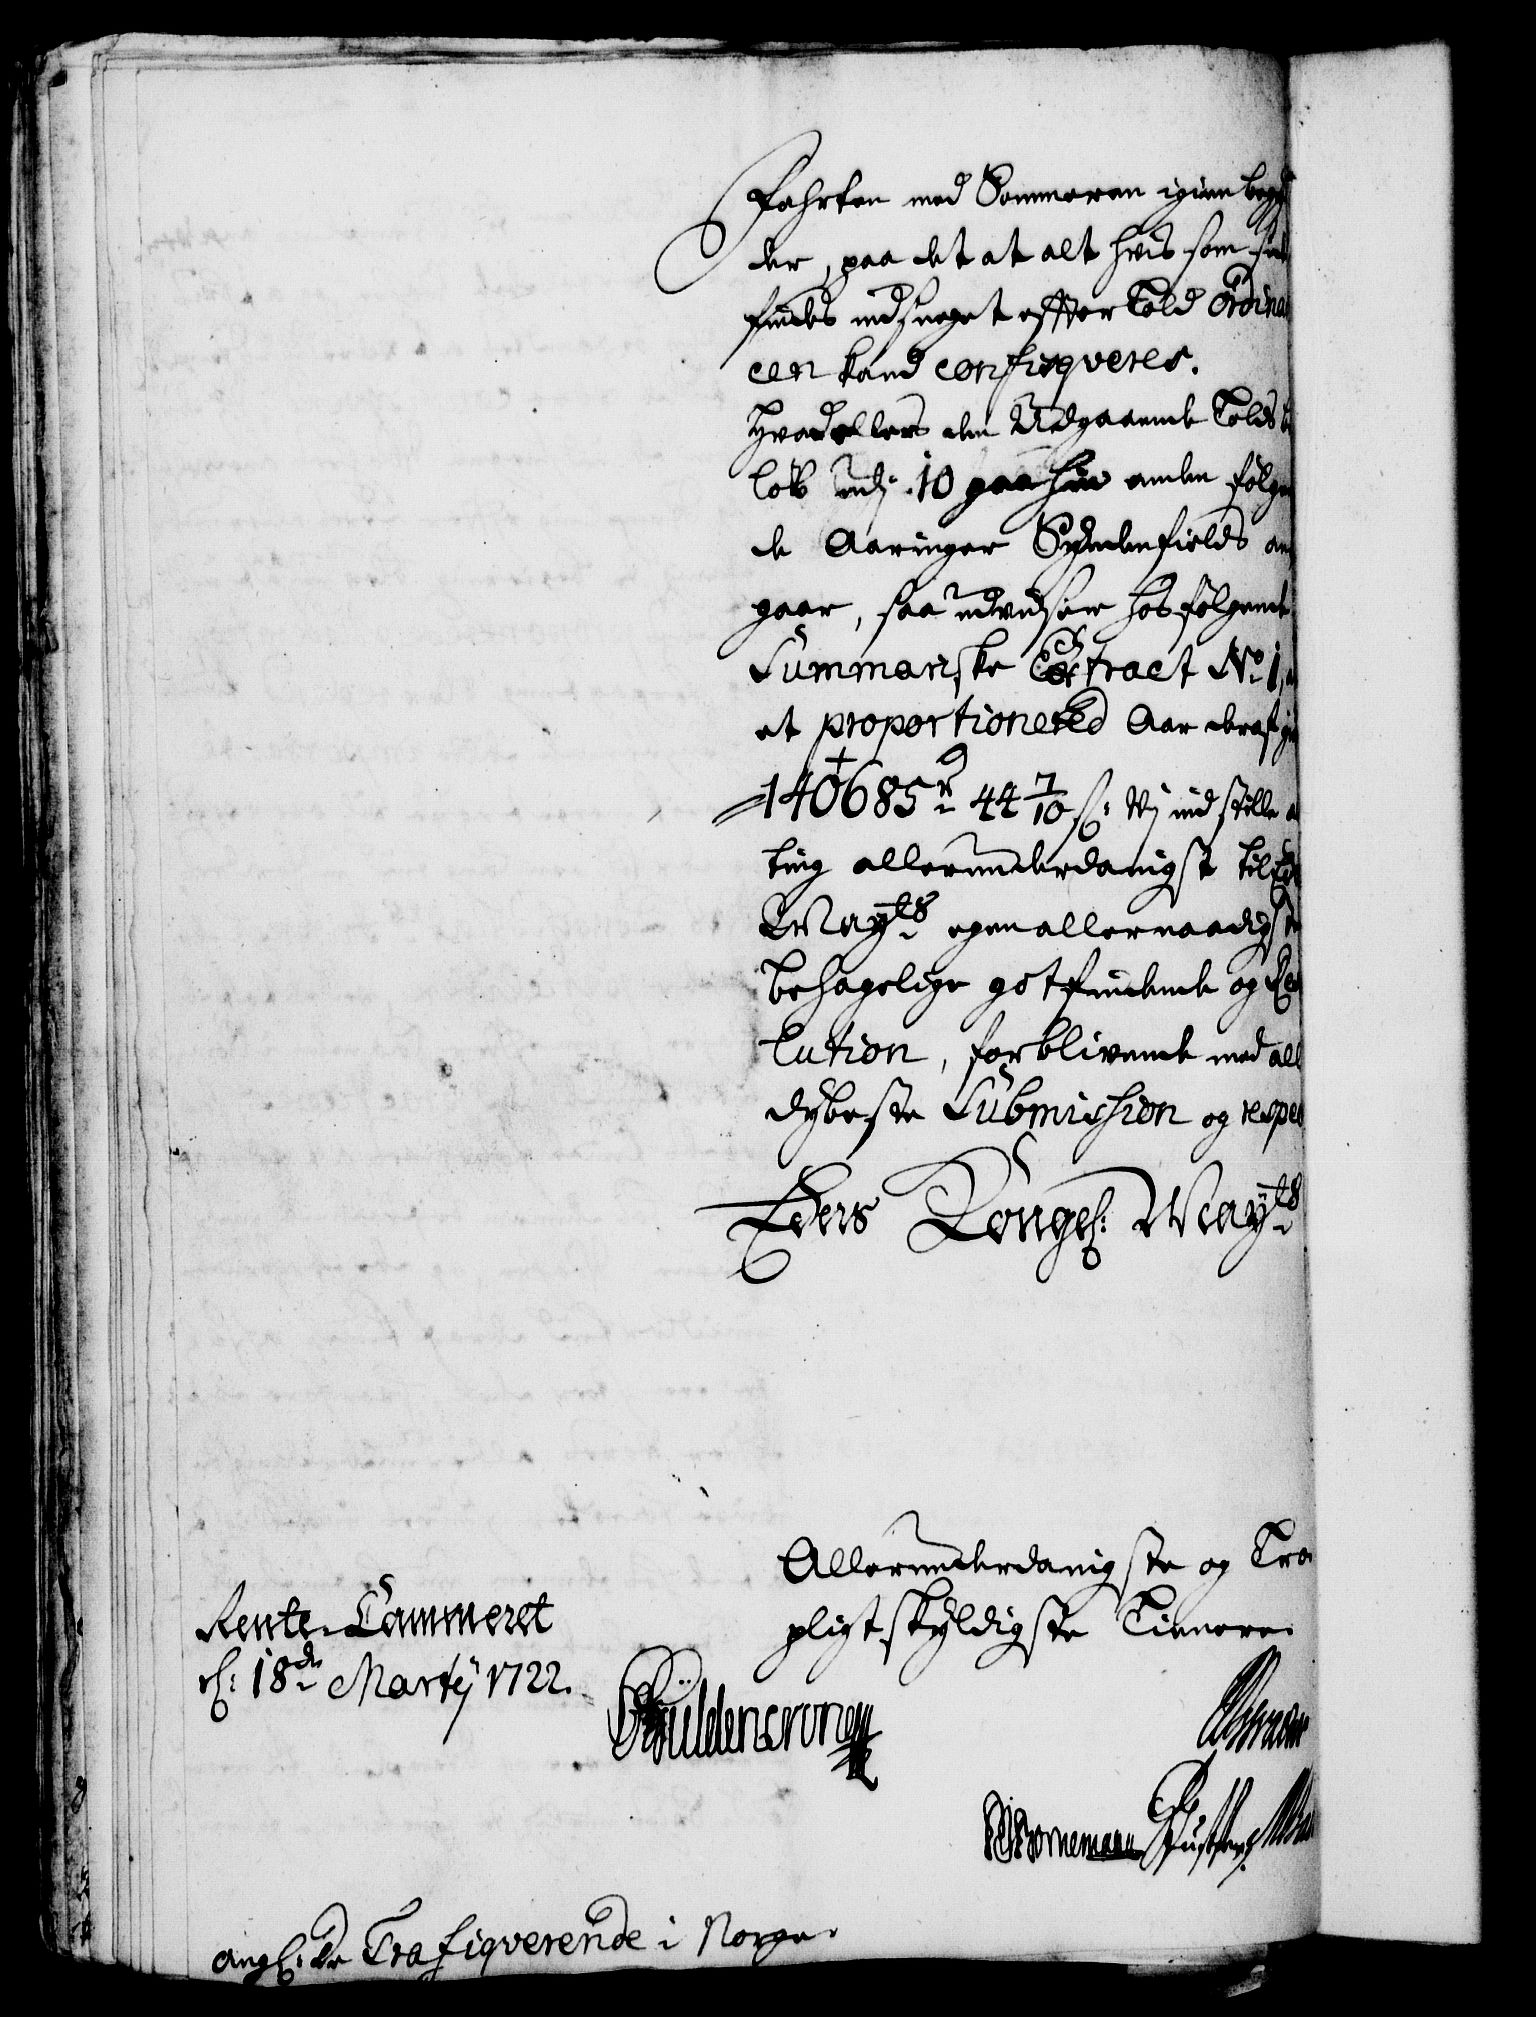 Fahrten med Sommeren igien begyn
der, paa det at alt hvis som
findes indsneget effter Told Ordinan
cen kand confisqveres.
Hvad ellers den Udgaaende Tolds be
löb udj 10 paa hin anden fölgen
de Aaringer Syndenfields an
gaar, saa udviiser hosfölgende
Summariske Extract No. 1,
et proportionered Aar deraf
140685 rd 44 7/10 s: Vj indstille
ting allerunderdanigst til Eders
Mayts egen allernaadigste
behagelige gotfindende og Reso
lution, forblivende med all
dybeste Submission og respect
Eders Kongel: Mayts
Allerunderdanigste og Tro
pligtskyldigste Tienere
Rente-Cammeret
d: 18de Martij 1722.
Güldencrone
Bornemann
angl: de Trafiqverende i Norge.